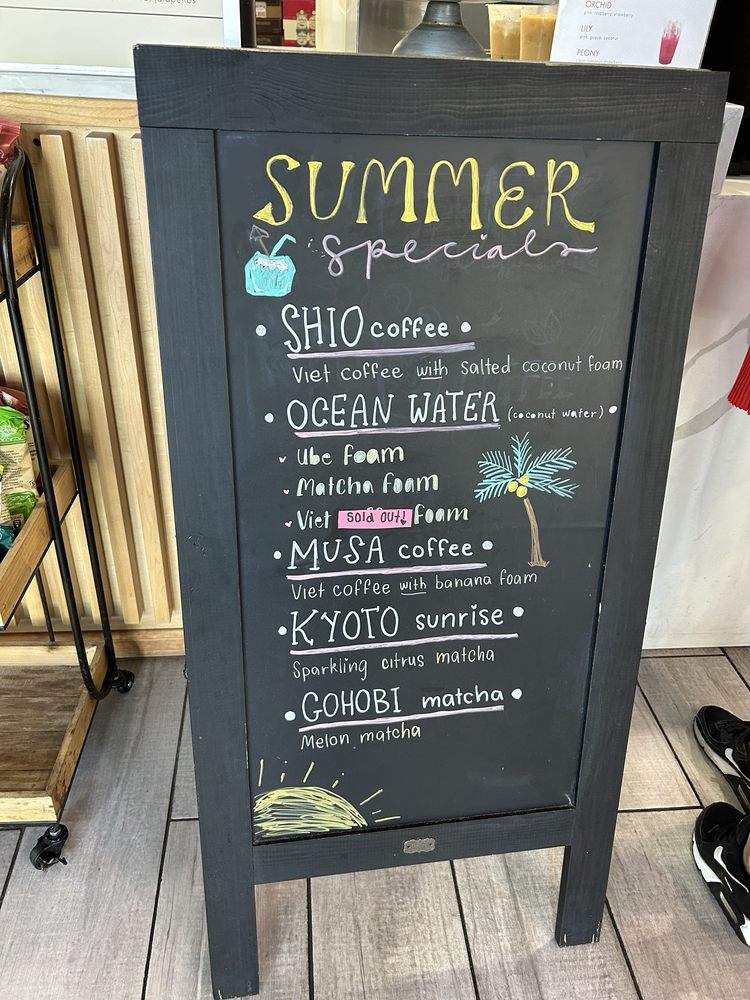 jalapeños
ORCHID
pink, raspberry, strawberry
LILY
pink, guava, coconut
PEONY
SUMMER
specials
• SHIO coffee •
Viet coffee with salted coconut foam
• OCEAN WATER (coconut water) •
Ube foam
Matcha foam
Viet sold out! foam
• MUSA coffee •
Viet coffee with banana foam
• KYOTO sunrise •
Sparkling citrus matcha
• GOHOBI matcha •
Melon matcha